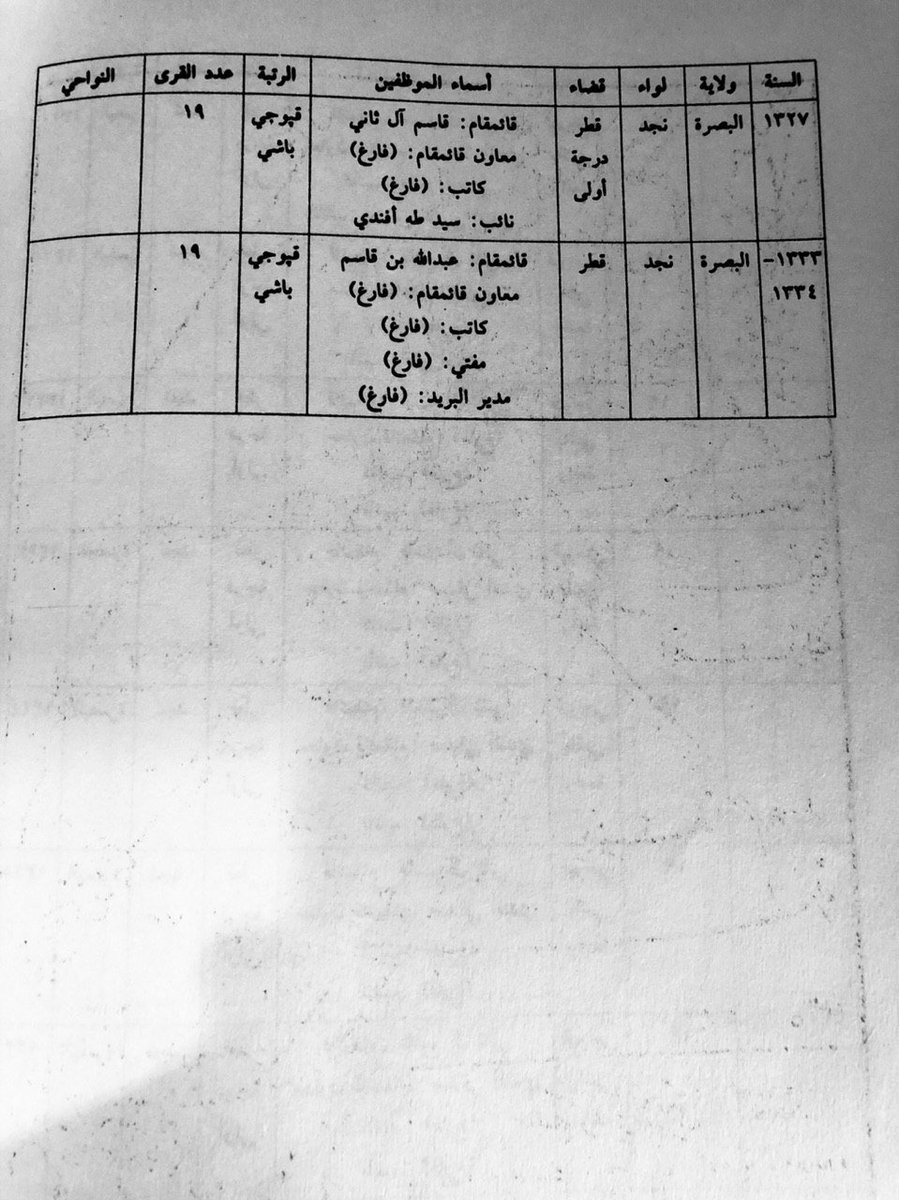 السنة ولاية لواء قضاء أسماء الموظفين الرتبة عدد القرى النواحي
١٣٢٧ البصرة نجد قطر قائمقام: قاسم آل ثاني قپوجي ١٩
درجة معاون قائمقام: (فارغ) باشي
أولى كاتب: (فارغ)
نائب: سيد طه أفندي
١٣٣٣- البصرة نجد قطر قائمقام: عبدالله بن قاسم قپوجي ١٩
١٣٣٤ معاون قائمقام: (فارغ) باشي
كاتب: (فارغ)
مفتي: (فارغ)
مدير البريد: (فارغ)